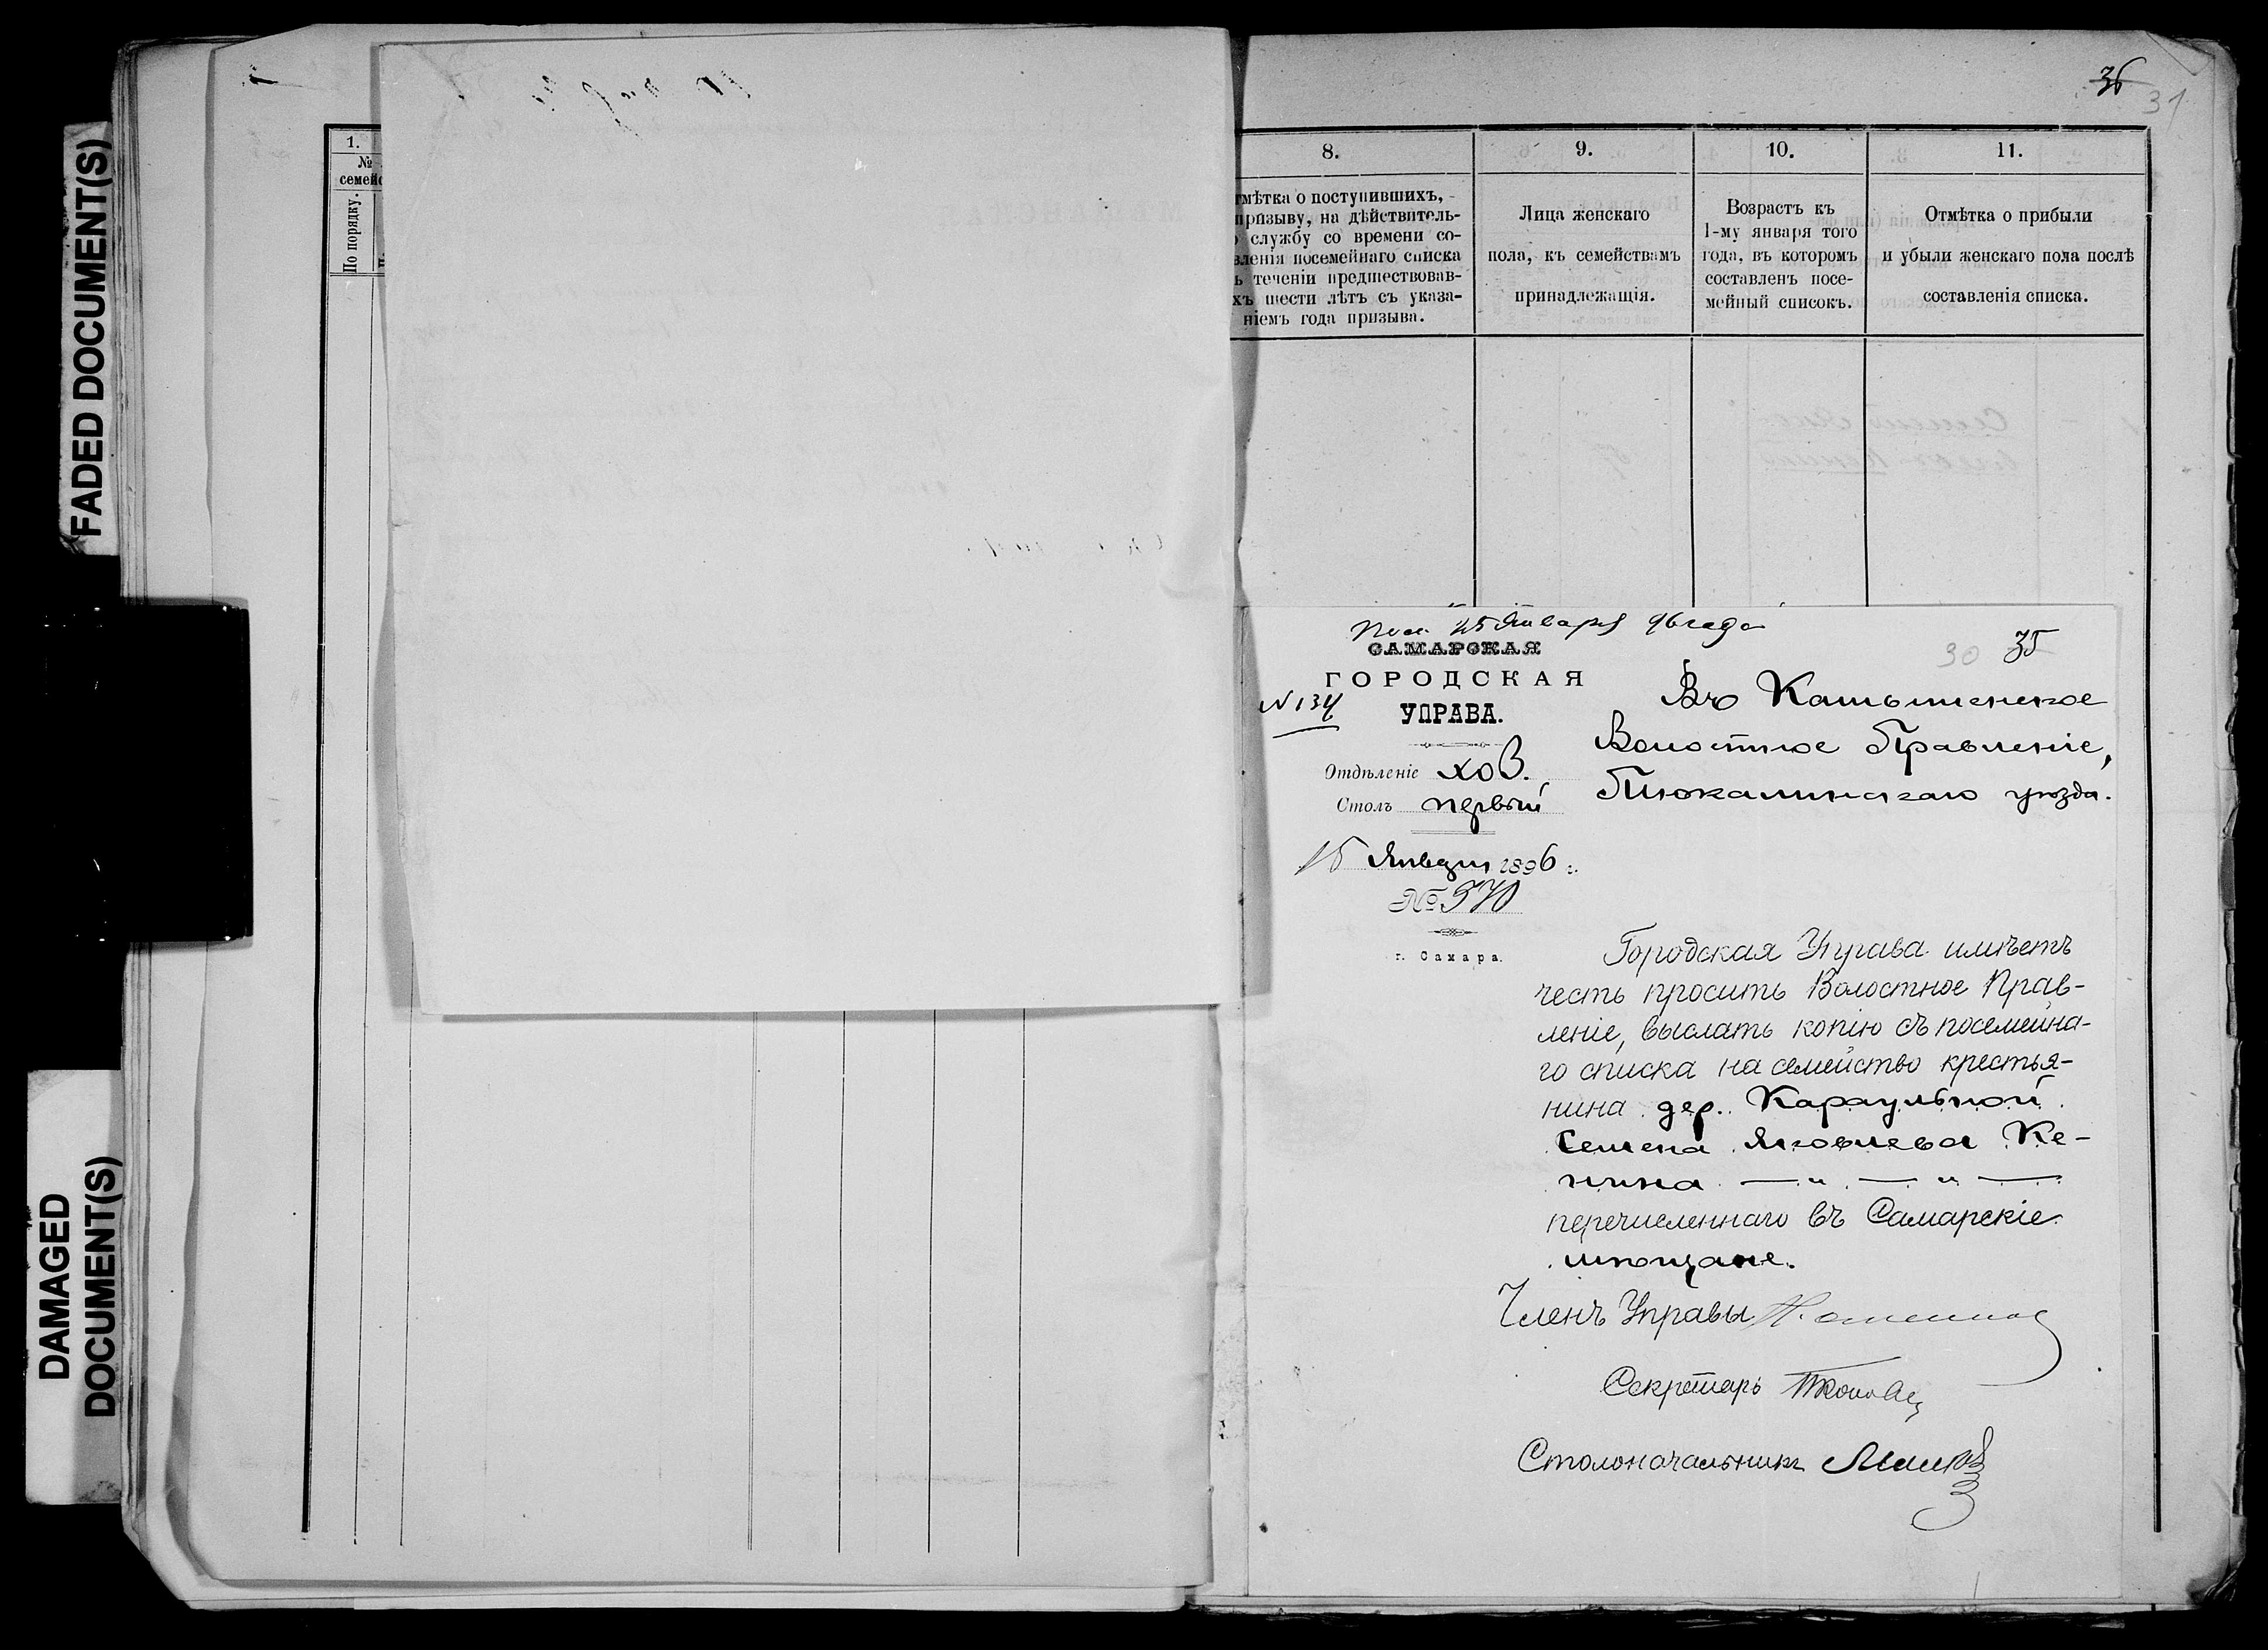 FADED DOCUMENT(S)
DAMAGED
DOCUMENT(S)
1.
№
По порядку.
36
31
8.
9.
10.
11.
тмѣтка о поступившихъ,
призыву, на дѣйствитель-
службу со времени со-
вленія посемейнаго списка
ъ теченіи предшествовав-
хъ шести лѣтъ съ указа-
ніемъ года призыва.
Лица женскаго
пола, къ семействамъ
принадлежащія.
Возрастъ къ
1-му января того
года, въ которомъ
составленъ посе-
мейный списокъ.
Отмѣтка о прибыли
и убыли женскаго пола послѣ
составленія списка.
Января 96 года
САМАРСКАЯ
ГОРОДСКАЯ
N 134
УПРАВА.
Отдѣленіе хоз.
Столъ первый
15 Января 1896 г.
№ 570
г. Самара.
30 35
Въ
Волостное Правленіе,
Тюкалинскаго уѣзда.
Городская Управа имѣетъ
честь просить Волостное Прав-
леніе, выслать копію съ посемейна-
го списка на семейство крестья-
нина дер. Караульной
Семена Яковлева Ке-
нина — „ — „ —
перечисленнаго въ Самарскіе
мѣщане.
Членъ Управы
Секретарь
Столоначальникъ